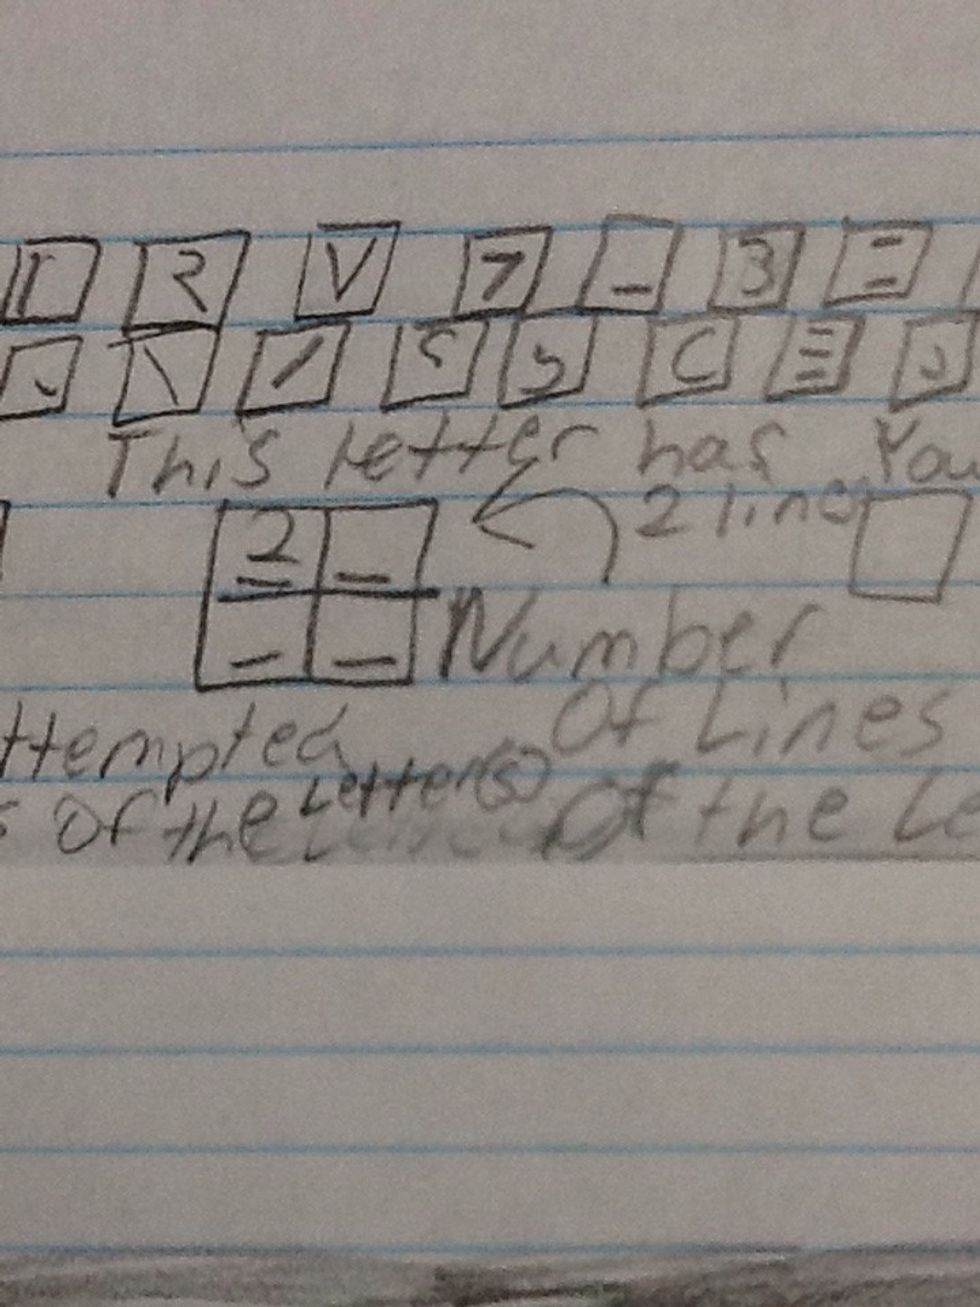 R V 7 _ 3 =
\ / S C Ξ
This letter has You
2 _ 2 line
_ _ Number
ttempted Of Lines
s Of the Letter(s) Of the Le